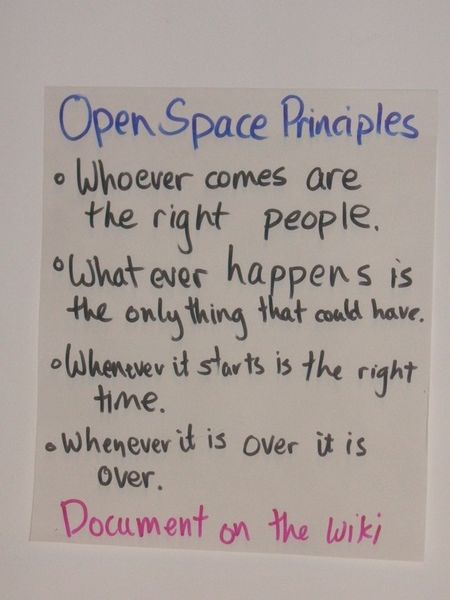 Open Space Principles
• Whoever comes are
the right people.
• What ever happens is
the only thing that could have.
• Whenever it starts is the right
time.
• Whenever it is over it is
over.
Document on the wiki